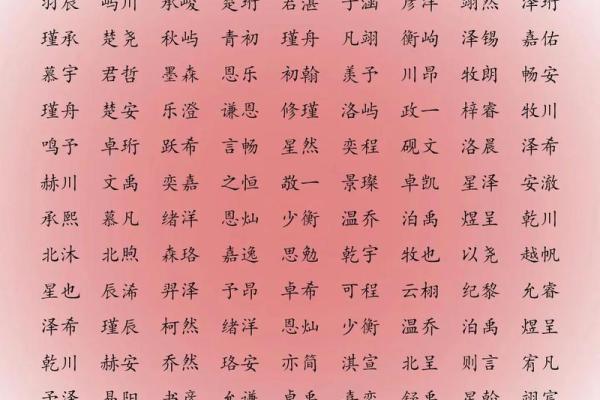 羽辰 屿川 承峻 楚珩 君湛 子涵 彦洋 翊然 泽珩
瑾承 楚尧 秋屿 青初 瑾舟 凡翊 衡岣 泽锡 嘉佑
慕宇 君哲 墨森 恩乐 初翰 羡予 川昂 牧朗 畅安
瑾舟 楚安 乐澄 谦恩 修瑾 洛屿 政一 梓睿 牧川
鸣予 卓珩 跃希 言畅 星然 奕程 砚文 洛晨 泽希
赫川 文禹 奕嘉 之恒 敬一 景璨 卓凯 星泽 安澈
承熙 慕凡 绪洋 恩灿 少衡 温乔 泊禹 煜呈 乾川
北沐 北煦 森珞 嘉逸 思勉 乾宇 牧也 以尧 越帆
星也 辰浠 羿泽 予昂 卓希 可程 云栩 纪黎 允睿
泽希 瑾辰 柯然 绪洋 恩灿 少衡 温乔 泊禹 煜呈
乾川 赫安 乔然 珞安 亦简 淇宣 北呈 则言 宥凡
予泽 易阳 书彦 允谦 卓禹 嘉奕 舒禹 星翰 翊宸